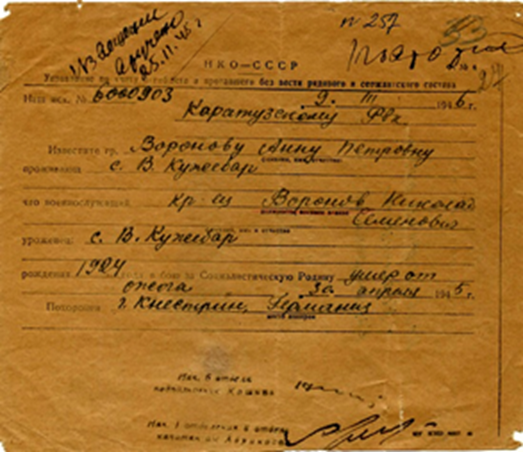 Извещение
вручено
25.11.46 г
№ 257
НКО–СССР
Управление по учету погибшего и пропавшего без вести рядового и сержантского состава
Наш исх. № 6000903 9. III 1946 г.
Каратузскому Рвк
Известите гр. Воронову Анну Петровну
проживающ с. В. Кужебар
что военнослужащий кр-ец Воронов Николай
Семенович
уроженец: с. В. Кужебар
рождения 1924 в бою за Социалистическую Родину умер от
ожога 30 апреля 1945 г.
Похоронен г. Кнестрин, Германия
Нач. 6 отдела
Нач. 1 отделения 6 отдела